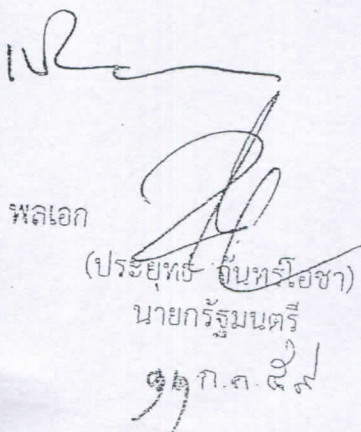 พลเอก
(ประยุทธ์ จันทร์โอชา)
นายกรัฐมนตรี
ก.ค. ๕๙